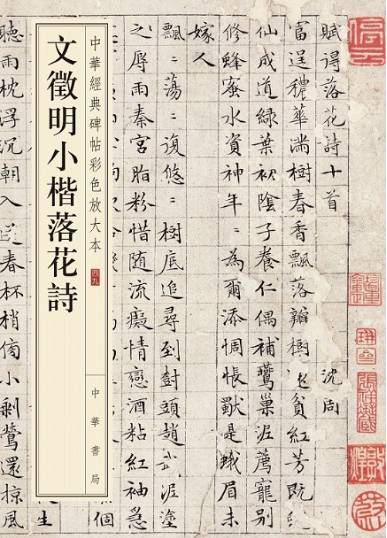 賦得落花詩十首 沈周
富逞穠華滿樹春香飄落瓣樹還貧紅芳既
仙成道綠葉初陰子養仁偶補鶯巢泥薦寵別
修蜂蜜水資神年〻為爾添惆悵是蛾眉未
嫁人
飄〻蕩〻復悠〻樹底追尋到樹頭趙武泥塗
之辱雨秦宮脂粉惜隨流癡情戀酒粘紅袖急
個
中華經典碑帖彩色放大本
四九
文徵明小楷落花詩
中華書局
生
聽雨枕浮沉朝入春杯梢俏小剩鶯還掠風